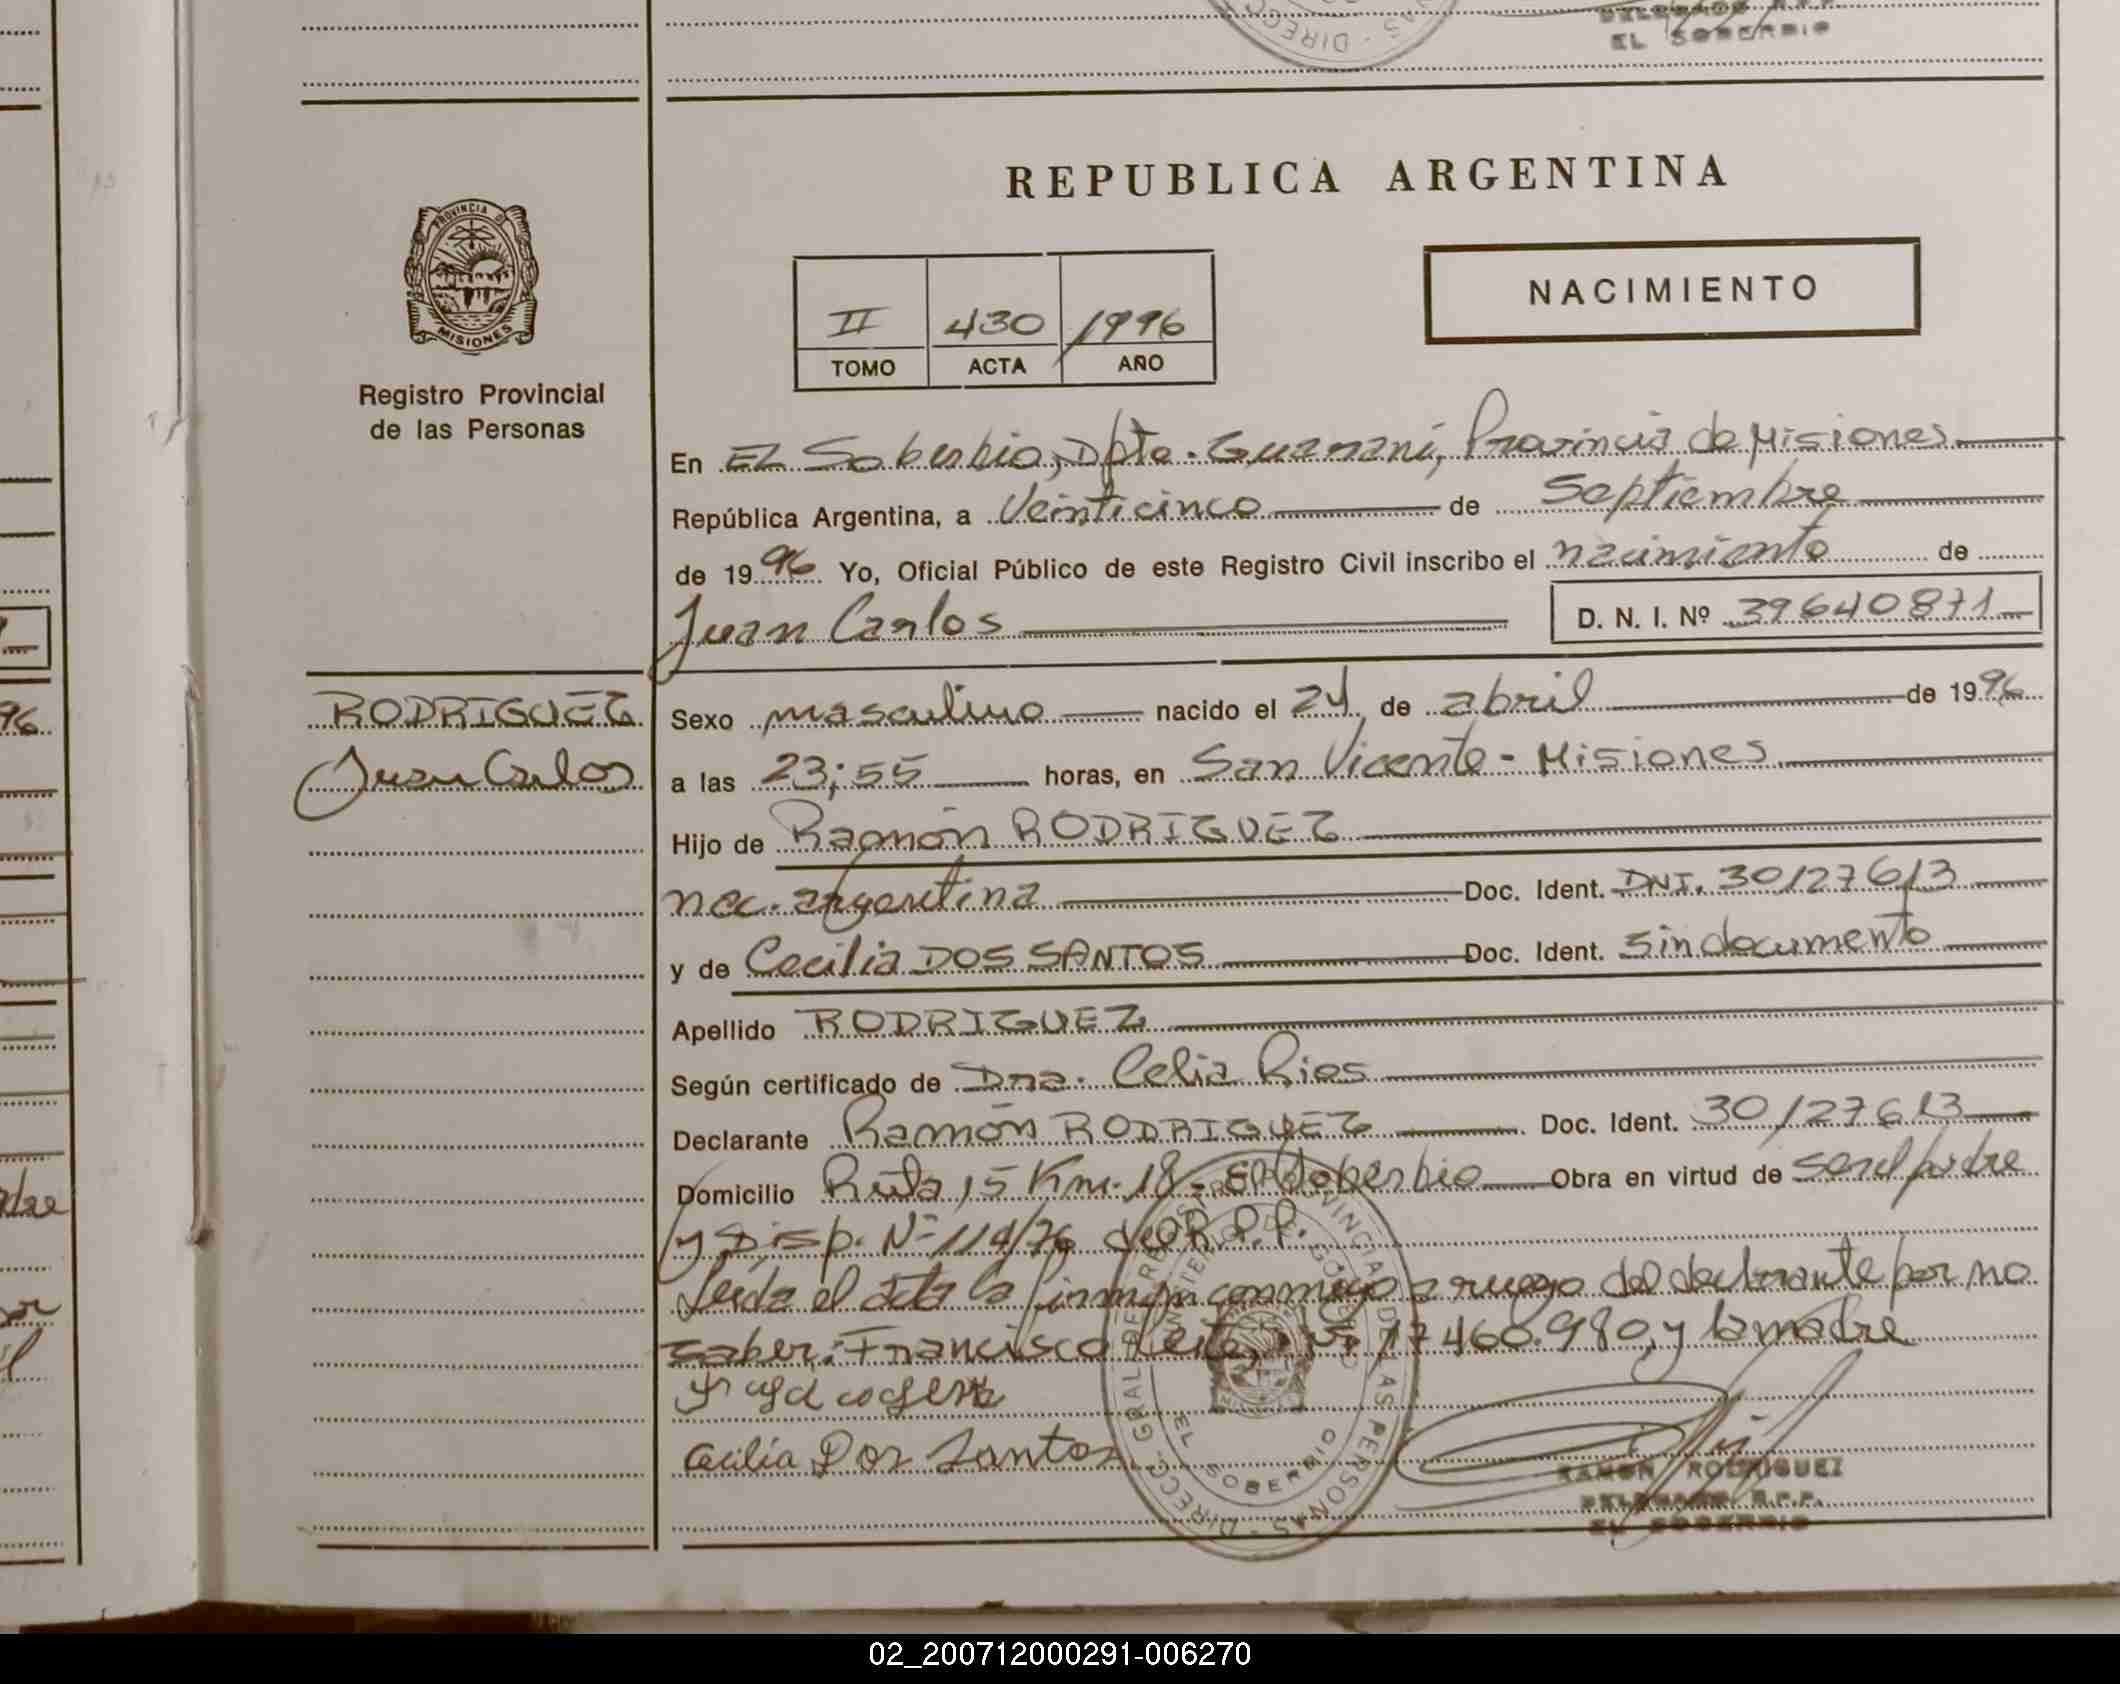 EL SOBERBIO
REPUBLICA ARGENTINA
PROVINCIA D
MISIONES
Registro Provincial
de las Personas
II 430 1996
TOMO ACTA AÑO
NACIMIENTO
En El Soberbio, Dpto. Guaraní, Provincia de Misiones
República Argentina, a Veinticinco de Septiembre
de 1996 Yo, Oficial Público de este Registro Civil inscribo el nacimiento de
Juan Carlos D. N. I. Nº 39640871
RODRIGUEZ
Juan Carlos
Sexo masculino nacido el 24 de abril de 1996
a las 23;55 horas, en San Vicente - Misiones
Hijo de Ramón RODRIGUEZ
nac. argentina Doc. Ident. DNI. 30127613
y de Cecilia DOS SANTOS Doc. Ident. Sin documento
Apellido RODRIGUEZ
Según certificado de Dra. Celia Rios
Declarante Ramón RODRIGUEZ Doc. Ident. 30127613
Domicilio Ruta 15 Km. 18 - El Soberbio Obra en virtud de ser el padre
y Disp. Nº 114/76 del R.P.P.
Leída el acta la firman conmigo a ruego del declarante por no
saber: Francisco Leite, 17460.980, y la madre
Cecilia Dos Santos
EL SOBERBIO
RAMON RODRIGUEZ
DELEGADO R.P.P.
EL SOBERBIO
02_200712000291-006270